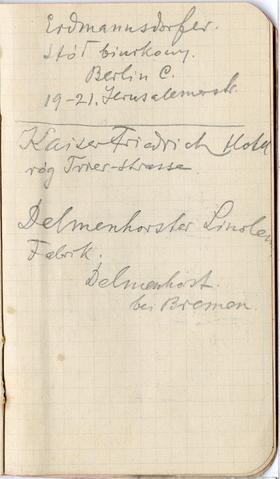 Erdmannsdorfer.
stół biurkowy.
Berlin C.
19-21. Jerusalemerstr.
Kaiser Friedrich Hotel
róg Trier-strasse
Delmenhorster Linoleum
Fabrik.
Delmenhorst.
bei Bremen.